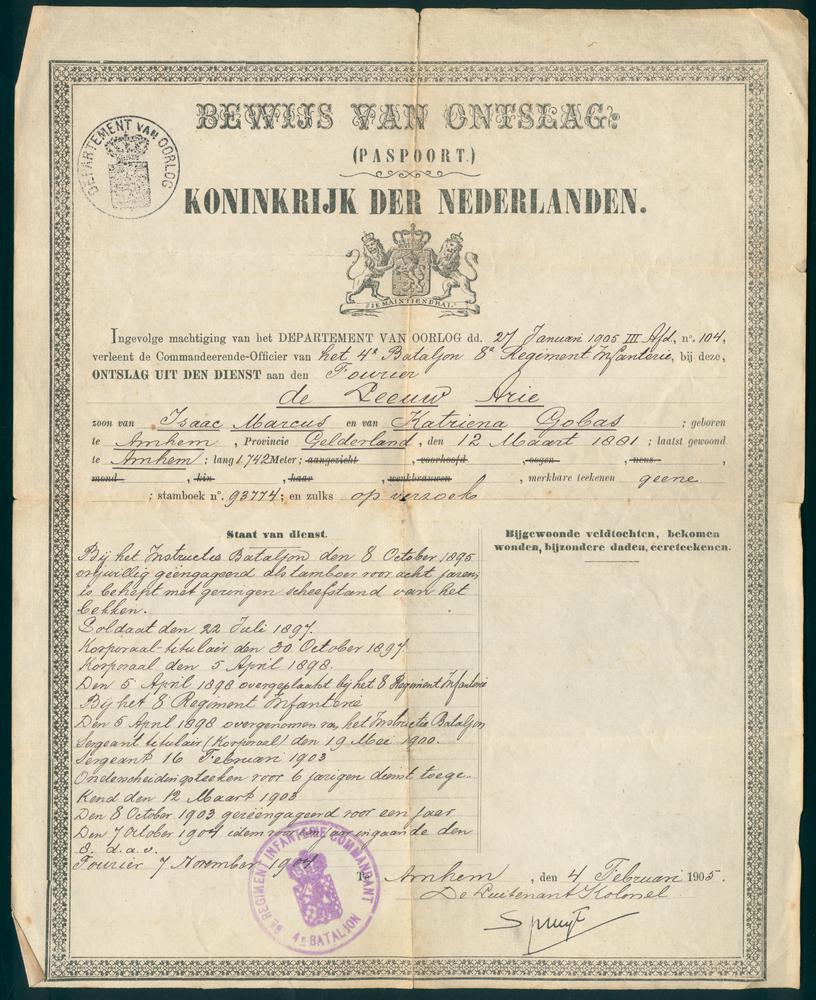 DEPARTEMENT VAN OORLOG
BEWIJS VAN ONTSLAG:
(PASPOORT.)
KONINKRIJK DER NEDERLANDEN.
JE MAINTIENDRAI.
Ingevolge machtiging van het DEPARTEMENT VAN OORLOG dd. 27 Januari 1905 III Afd, no. 104,
verleent de Commandeerende-Officier van het 4e Bataljon 8e Regiment Infanterie, bij deze,
ONTSLAG UIT DEN DIENST aan den Fourier
de Leeuw Arie
zoon van Isaac Marcus en van Katriena Gobas ; geboren
te Arnhem, Provincie Gelderland, den 12 Maart 1881; laatst gewoond
te Arnhem; lang 1.742 Meter; aangezicht , voorhoofd , oogen , neus ,
mond , kin , haar , wenkbrauwen , merkbare teekenen geene
; stamboek no. 93774; en zulks op verzoek
Staat van dienst.
Bij het Instructie Bataljon den 8 October 1895
vrijwillig geëngageerd als tamboer voor acht jaren
is behept met geringen scheefstand van het
bekken.
Soldaat den 22 Juli 1897.
Korporaal-titulair den 30 October 1897
Korporaal den 5 April 1898.
Den 5 April 1898 overgeplaatst bij het 8 Regiment Infanterie
Bij het 8 Regiment Infanterie
Den 5 April 1898 overgenomen van het Instructie Bataljon
Sergeant titulair (Korporaal) den 19 Mei 1900.
Sergeant 16 Februari 1903
Onderscheidingsteeken voor 6 jarigen dienst toege-
kend den 12 Maart 1903
Den 8 October 1903 gereëngageerd voor een jaar
Den 7 October 1904 idem voor een jaar ingaande den
8. d.a.v.
Fourier 7 November 1904
Bijgewoonde veldtochten, bekomen
wonden, bijzondere daden, eereteekenen.
8e REGIMENT INFANTERIE COMMANDANT
4e BATALJON
Te Arnhem, den 4 Februari 1905.
De Luitenant Kolonel